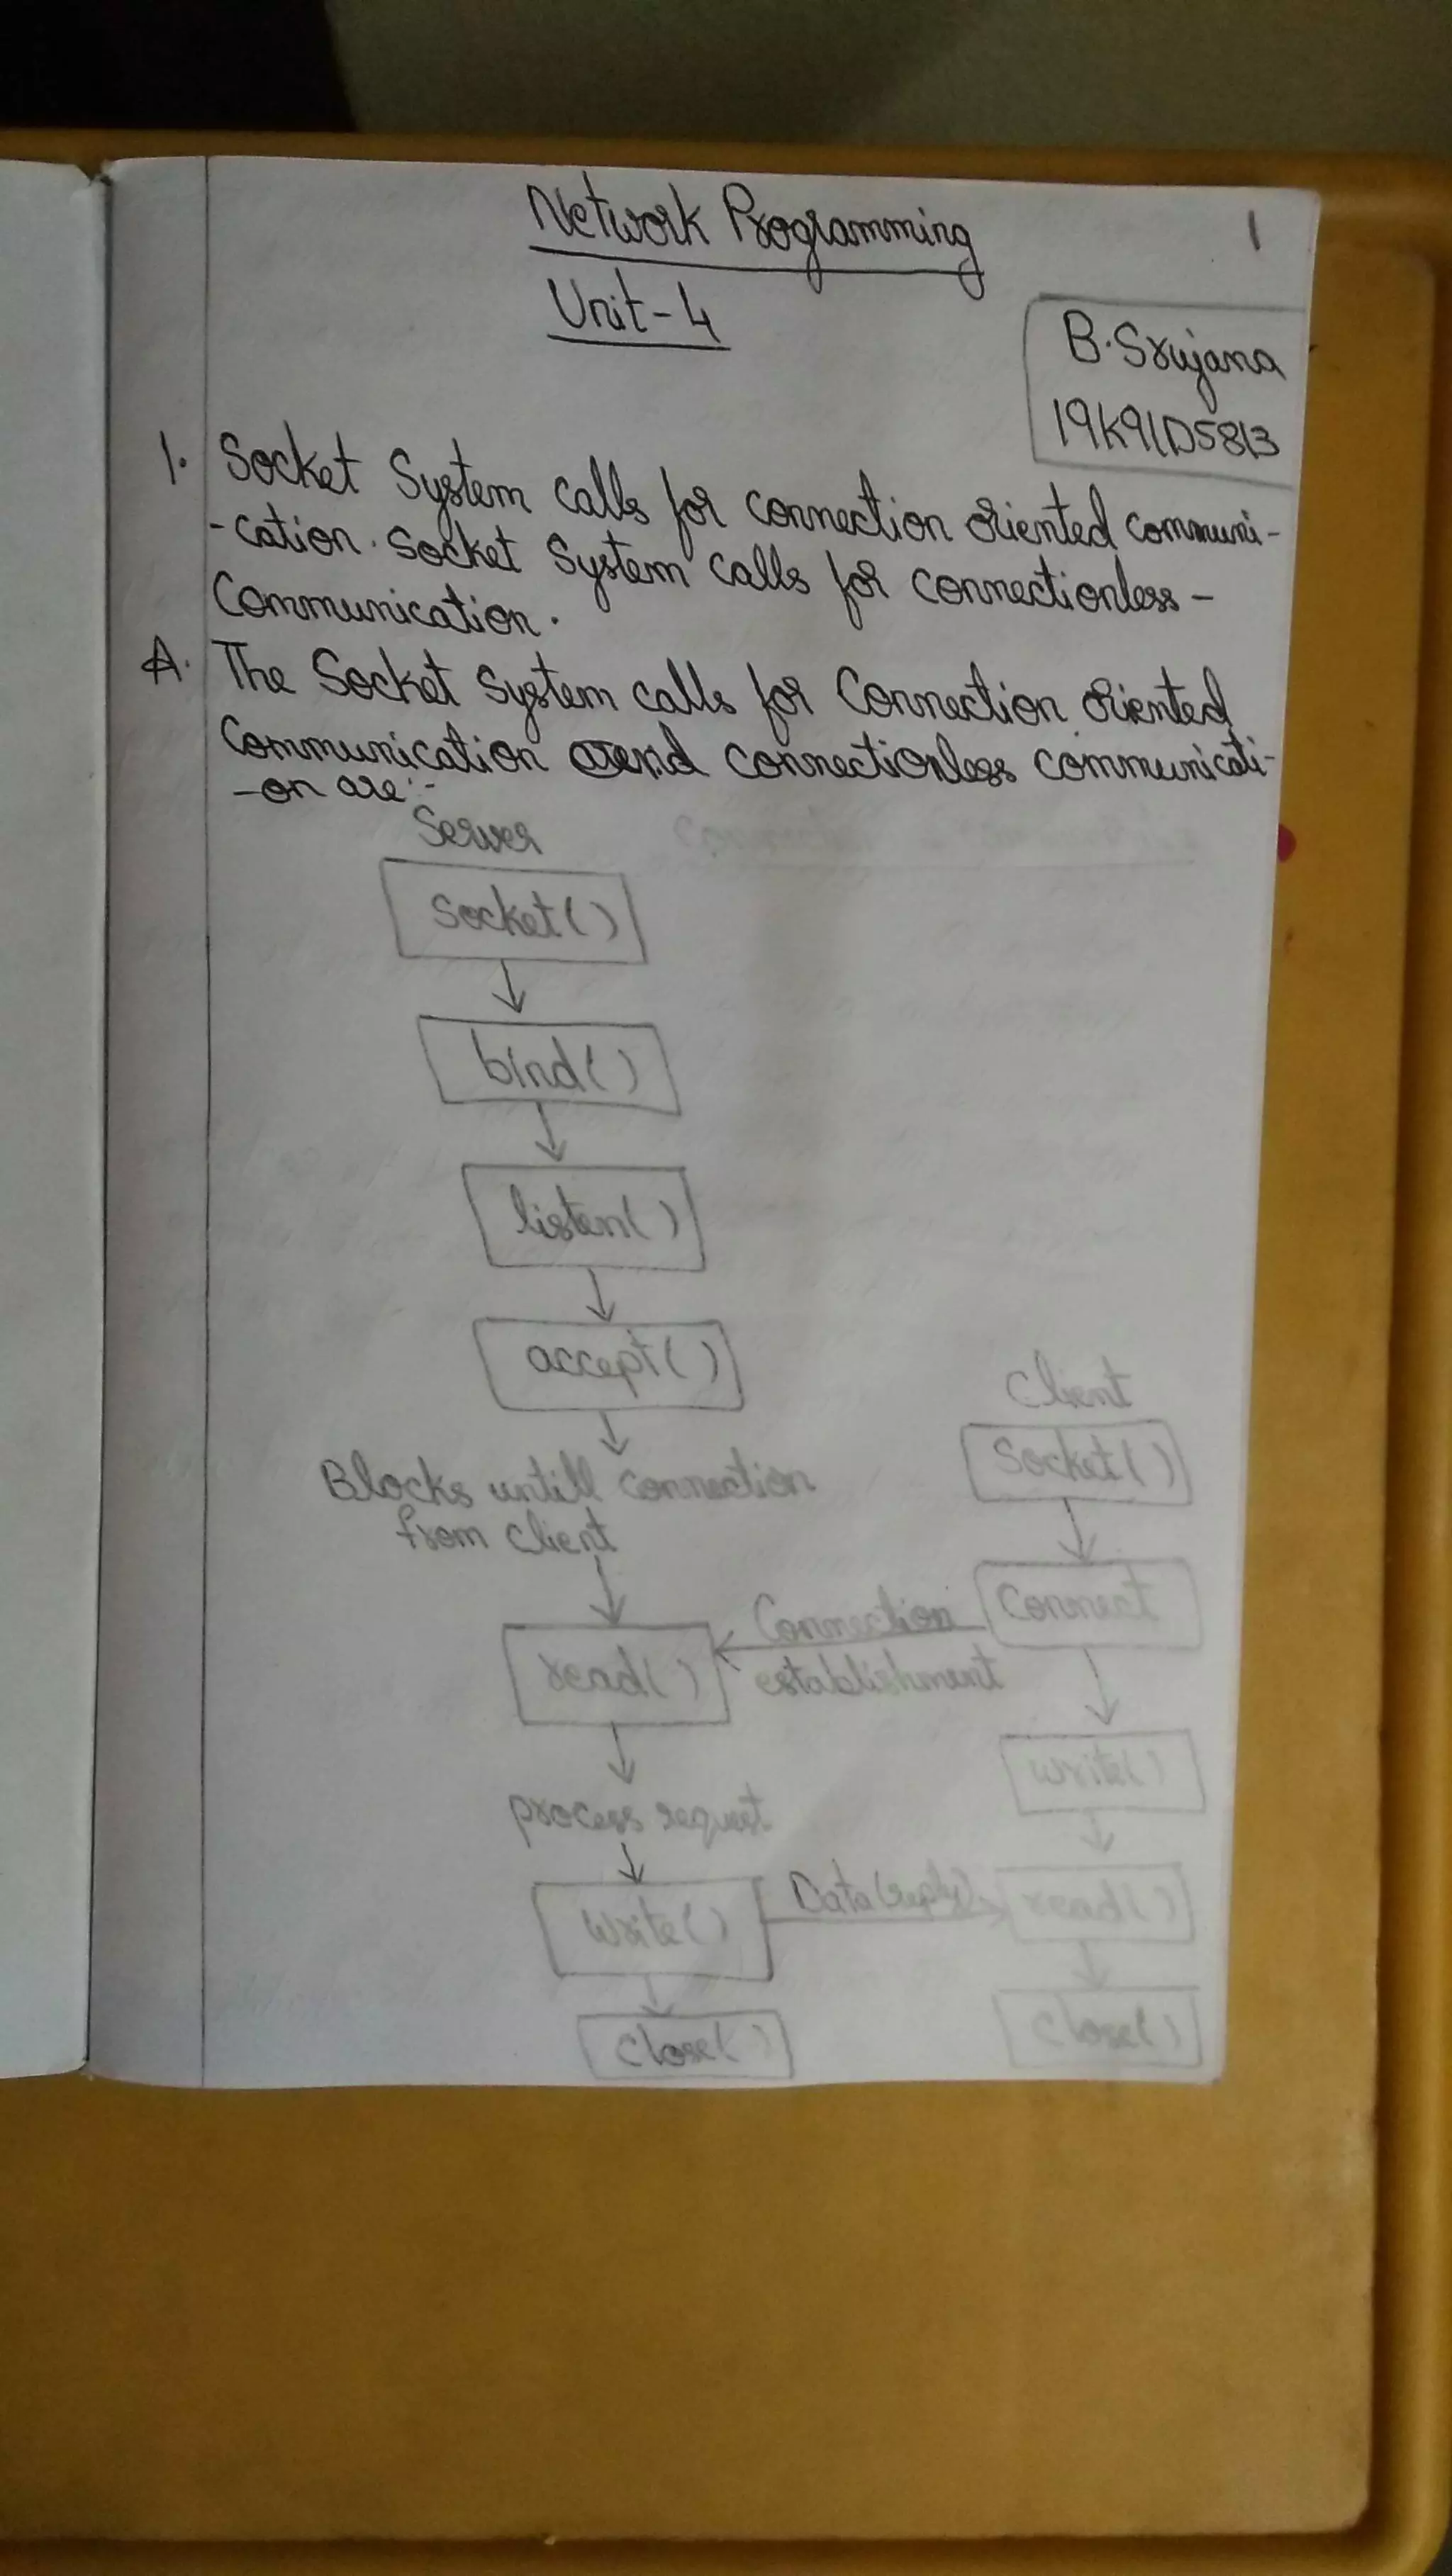 Network Programming
1
Unit-4
B.Srujana
19K91D5813
1. Socket System calls for connection oriented communi-
-cation. Socket System calls for connectionless-
Communication.
A. The Socket System calls for Connection oriented
Communication and connectionless communicati-
-on are:-
Server
Socket()
bind()
listen()
accept()
Client
Socket()
Blocks untill connection
from client
Connect
Connection
establishment
read()
write()
process request
write()
Data(reply)
read()
close()
close()